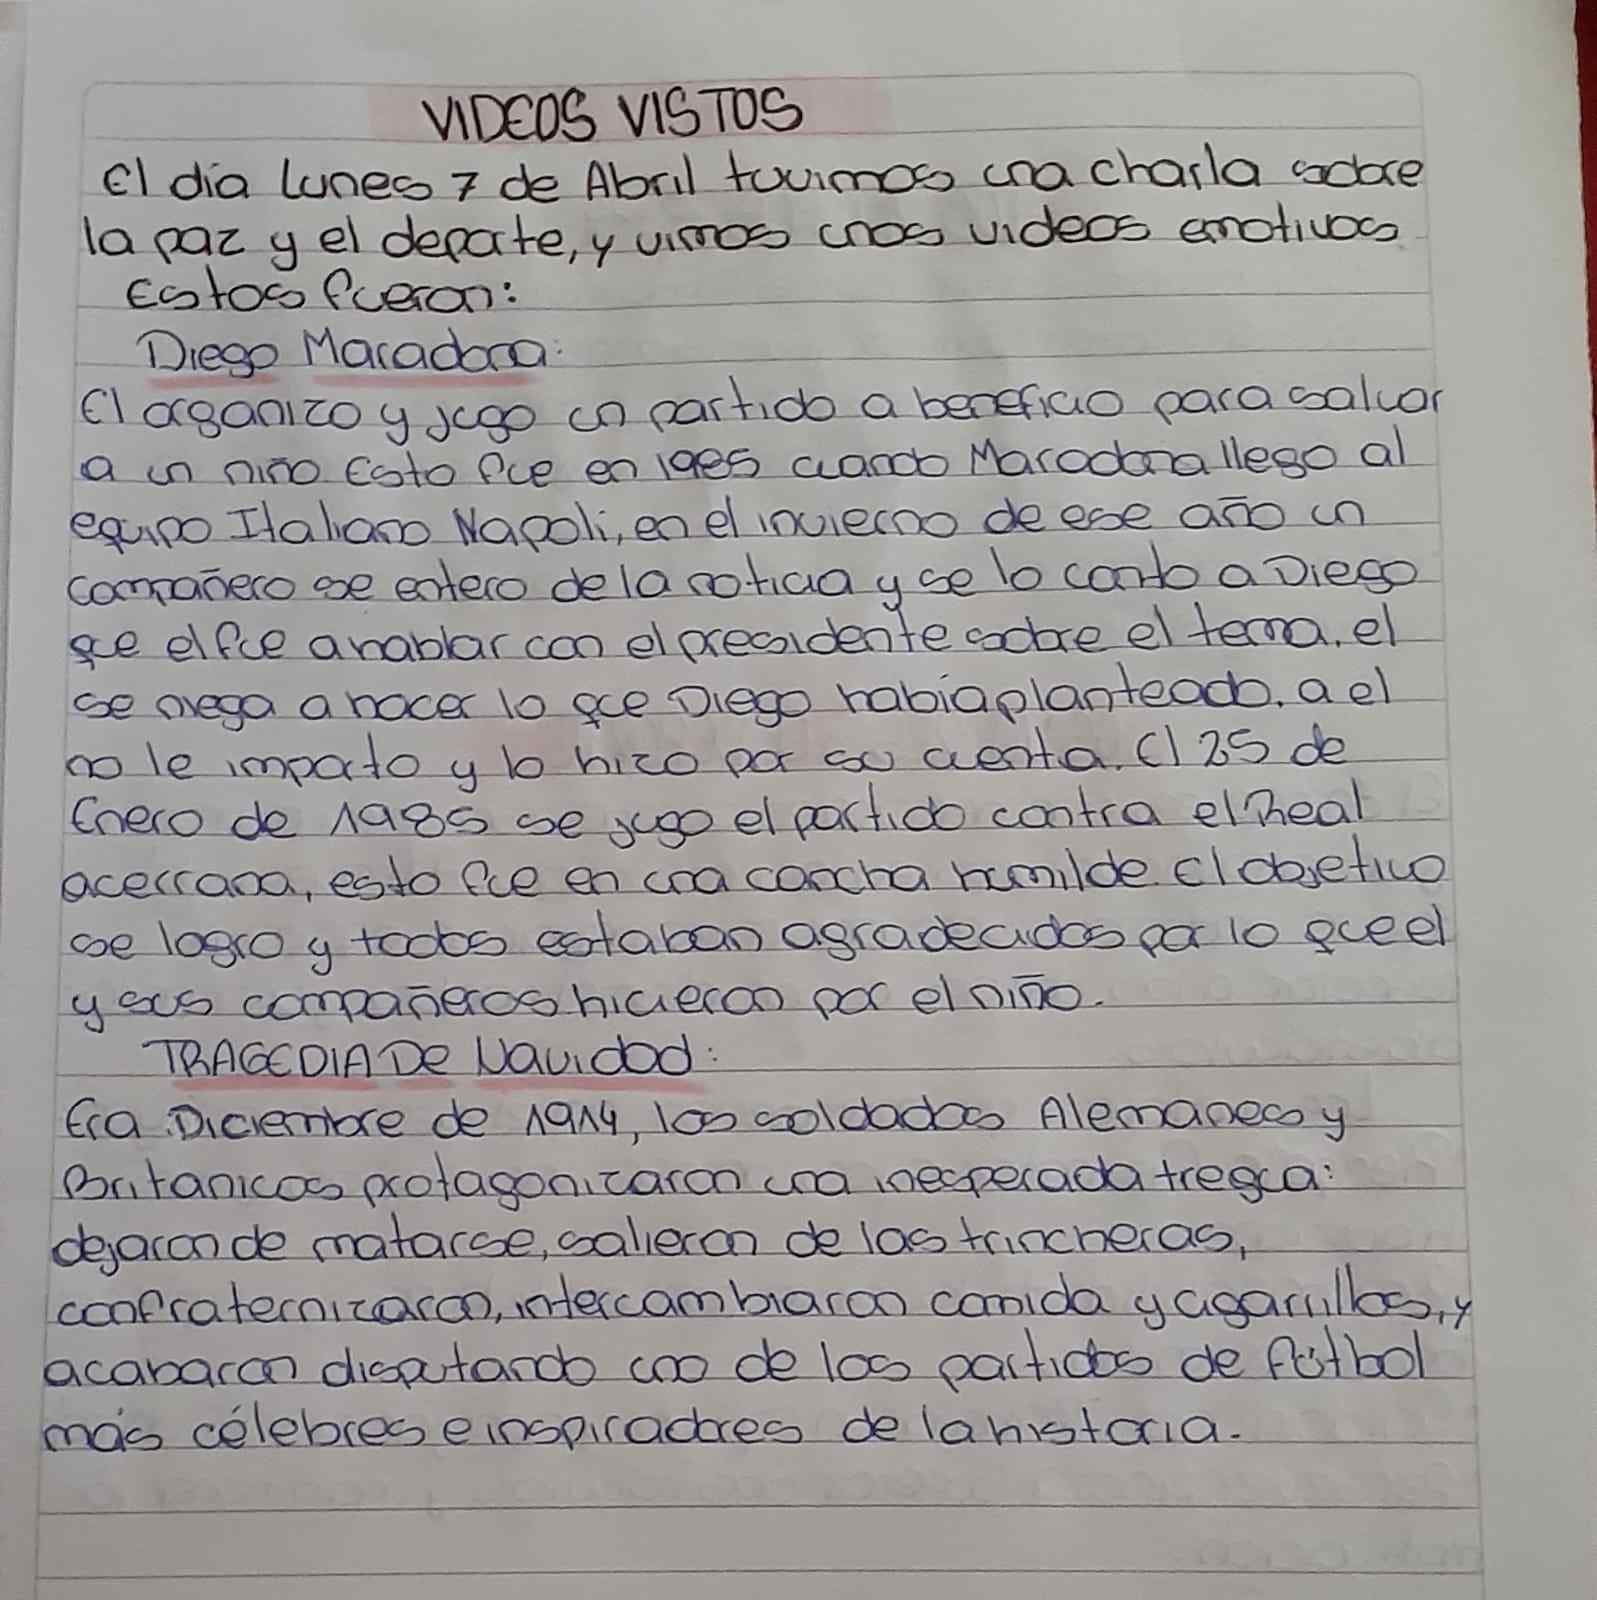 VIDEOS VISTOS
El día lunes 7 de Abril tuvimos una charla sobre
la paz y el deporte, y vimos unos videos emotivos
Estos fueron:
Diego Maradona:
El organizo y jugo un partido a beneficio para salvar
a un niño Esto fue en 1985 cuando Maradona llego al
equipo Italiano Napoli, en el invierno de ese año un
compañero se entero de la noticia y se lo conto a Diego
que el fue a hablar con el presidente sobre el tema, el
se niega a hacer lo que Diego había planteado, a el
no le importo y lo hizo por su cuenta. El 25 de
Enero de 1985 se jugo el partido contra el Real
acerrana, esto fue en una cancha humilde. El objetivo
se logro y todos estaban agradecidos por lo que el
y sus compañeros hicieron por el niño.
TRAGEDIA DE Navidad:
Era Diciembre de 1914, los soldados Alemanes y
Britanicos protagonizaron una inesperada tregua:
dejaron de matarse, salieron de las trincheras,
confraternizaron, intercambiaron comida y cigarrillos, y
acabaron disputando uno de los partidos de fútbol
más célebres e inspiradores de la historia.